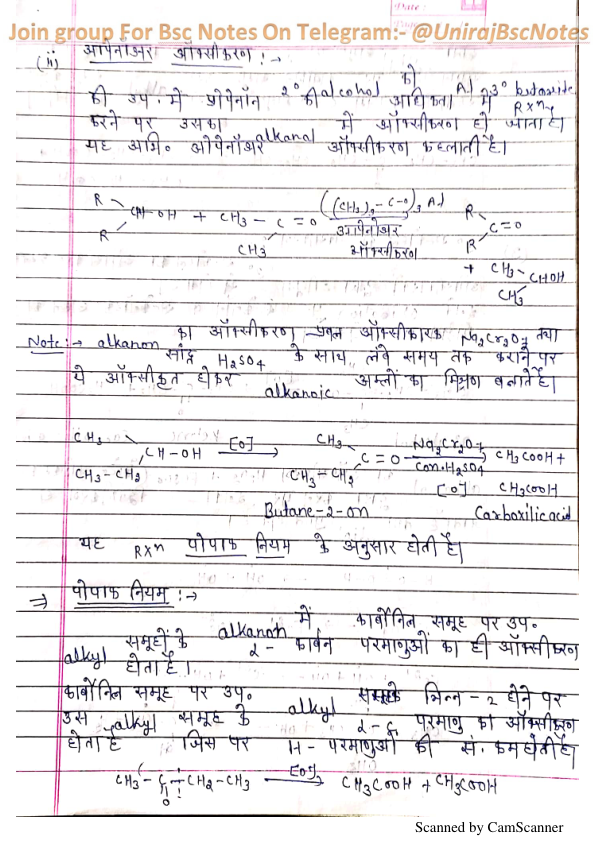 Join group For Bsc Notes On Telegram:- @UnirajBscNotes
(ii) ओपेनॉअर ऑक्सीकरण :→
को
की उप. में प्रोपेनॉन 2° alcohol की अधिकता में Al 3° butoxide
करने पर उसका alkanal में ऑक्सीकरण हो जाता है। RXⁿ
यह अभि० ओपेनॉअर ऑक्सीकरण कहलाती है।
R R CH-OH + CH₃ - C = O CH₃ ((CH₃)₃-C-O)₃Al ओपेनॉअर ऑक्सीकरण R R C=O
+ CH₃- CHOH CH₃
Note:→ alkanon का ऑक्सीकरण प्रबल ऑक्सीकारक Na₂Cr₂O₇ तथा
सांद्र H₂SO₄ के साथ लंबे समय तक कराने पर
ये ऑक्सीकृत होकर alkanoic अम्लों का मिश्रण बनाते है।
CH₃ CH-OH [O] CH₃ C=O Na₂Cr₂O₇ CH₃COOH +
CH₃-CH₂ CH₃-CH₂ Con.H₂SO₄ [O] CH₃COOH
Butane-2-on Carboxilic acid
यह RXⁿ पोपाफ नियम के अनुसार होती है।
⇒ पोपाफ नियम :→
alkanon में कार्बोनिल समूह पर उप०
alkyl समूहों के α - कार्बन परमाणुओं का ही ऑक्सीकरण
होता है।
कार्बोनिल समूह पर उप० alkyl समूह के भिन्न-२ होने पर
उस alkyl समूह के α-C परमाणु का ऑक्सीकरण
होता है जिस पर H-परमाणुओं की सं. कम होती है।
CH₃-C-CH₂-CH₃ [O] CH₃COOH + CH₃COOH
O
Scanned by CamScanner